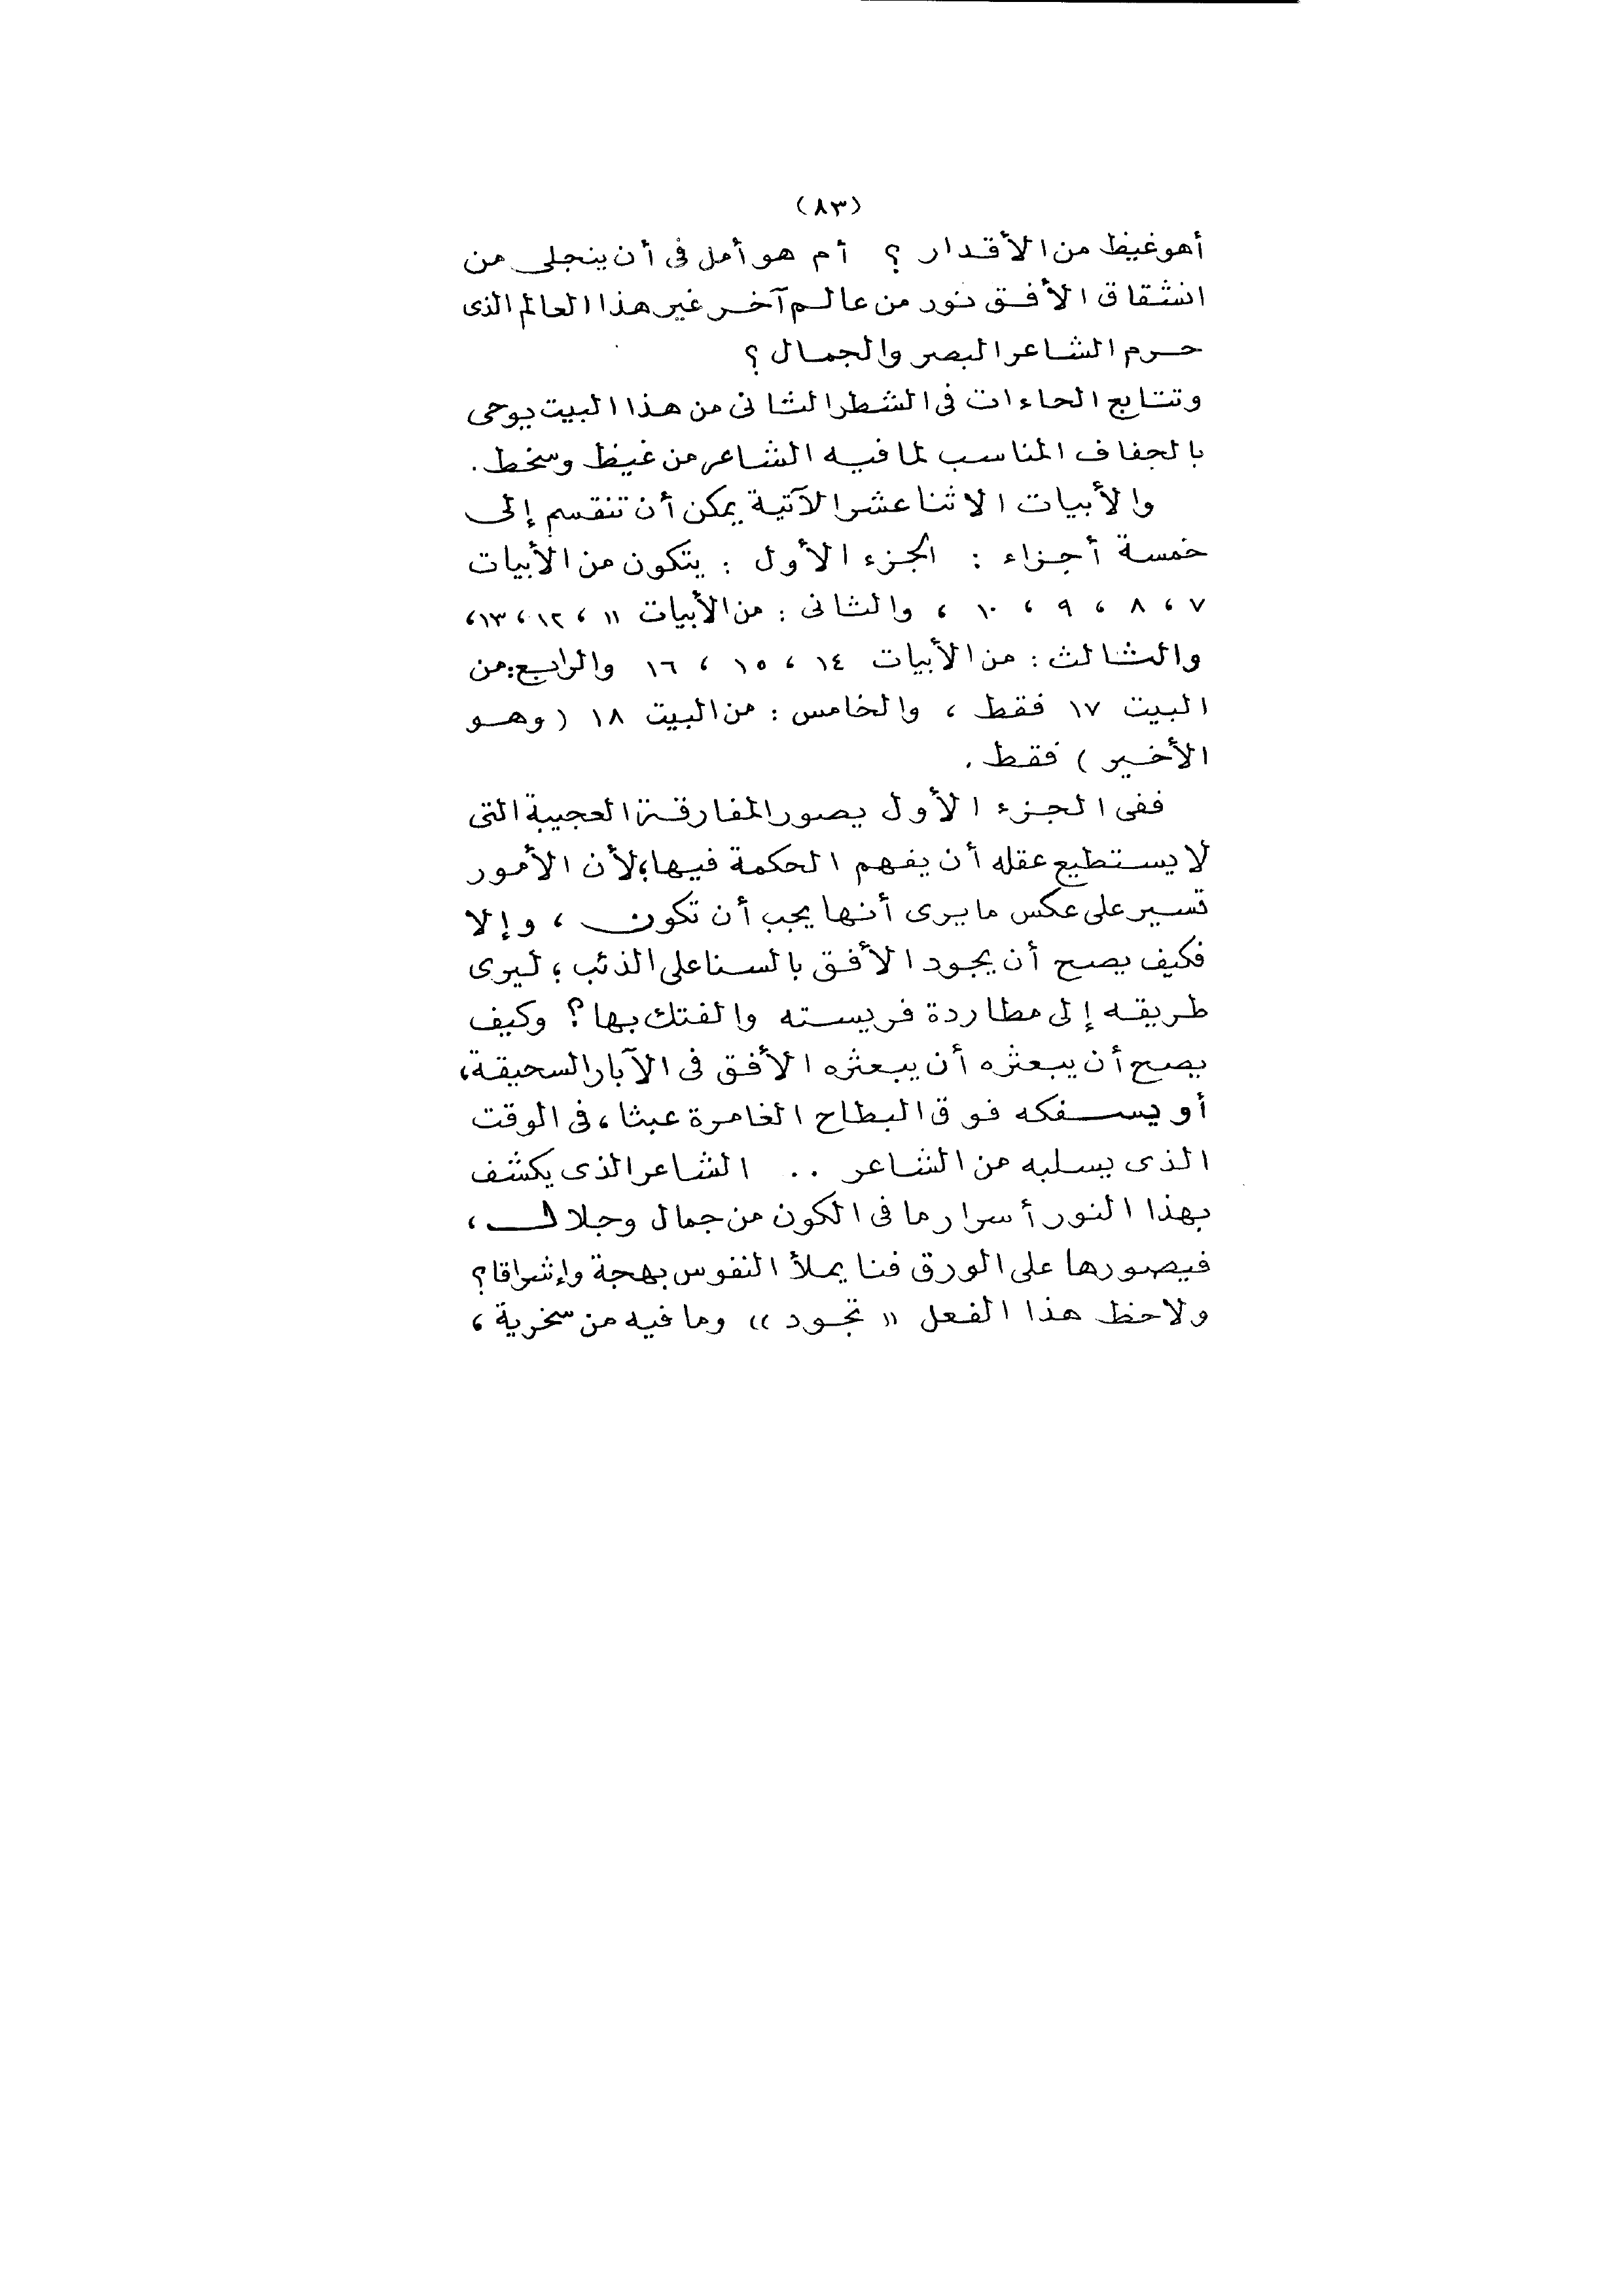 (٨٣)
أهو غيظ من الأقدار ؟ أم هو أمل فى أن ينجلى من
انشقاق الأفق نور من عالم آخر غير هذا العالم الذى
حرم الشاعر البصر والجمال ؟
وتتابع الحاءات فى الشطر الثانى من هذا البيت يوحى
بالجفاف المناسب لما فيه الشاعر من غيظ وسخط .
والأبيات الاثنا عشر الآتية يمكن أن تنقسم إلى
خمسة أجزاء : الجزء الأول : يتكون من الأبيات
٧ ، ٨ ، ٩ ، ١٠ ، والثانى : من الأبيات ١١ ، ١٢ ، ١٣،
والثالث : من الأبيات ١٤ ، ١٥ ، ١٦ والرابع : من
البيت ١٧ فقط ، والخامس : من البيت ١٨ ( وهو
الأخير ) فقط .
ففى الجزء الأول يصور المفارقة العجيبة التى
لا يستطيع عقله أن يفهم الحكمة فيها؛ لأن الأمور
تسير على عكس ما يرى أنها يجب أن تكون ، وإلا
فكيف يصح أن يجود الأفق بالسنا على الذئب ؛ ليرى
طريقه إلى مطاردة فريسته والفتك بها ؟ وكيف
يصح أن يبعثره أن يبعثره الأفق فى الآبار السحيقة،
أو يسفكه فوق البطاح الغامرة عبثا ، فى الوقت
الذى يسلبه من الشاعر .. الشاعر الذى يكشف
بهذا النور أسرار ما فى الكون من جمال وجلال ،
فيصورها على الورق فنا يملأ النفوس بهجة وإشراقا ؟
ولاحظ هذا الفعل « تجود » وما فيه من سخرية ،